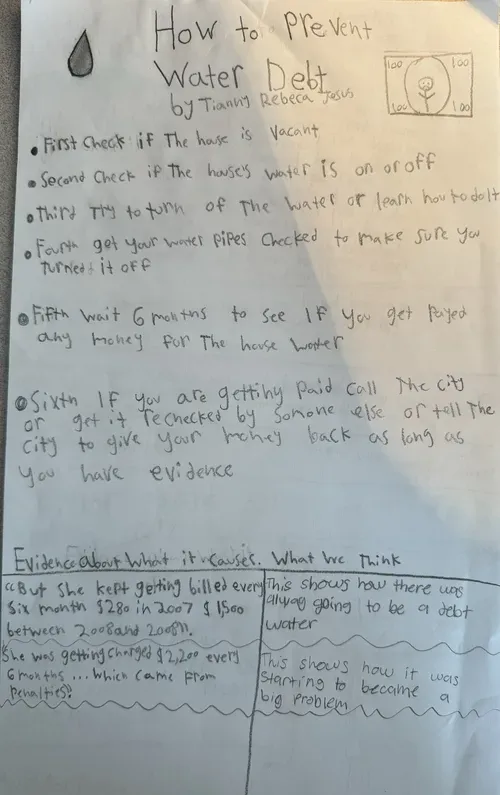 How to Prevent
Water Debt
by Tianny Rebeca Jesus
100 100
100 100
First Check if The house is Vacant
Second Check if The house's water is on or off
Third Try to turn of The water or learn how to do It
Fourth get your water pipes checked to make sure you
turned it off
Fifth wait 6 months to see If you get Payed
any money for The house water
Sixth If you are getting Paid call The city
or get it rechecked by Somone else or tell The
city to give your money back as long as
you have evidence
Evidence about What it causes. What We Think
"But She kept getting billed every
Six month $280 in 2007 $1,500
between 2008 and
This shows how there was
alway going to be a debt
water
She was getting charged $2,200 every
6 months ... which came from
Penalties!
This shows how it was
Starting to became a
big problem